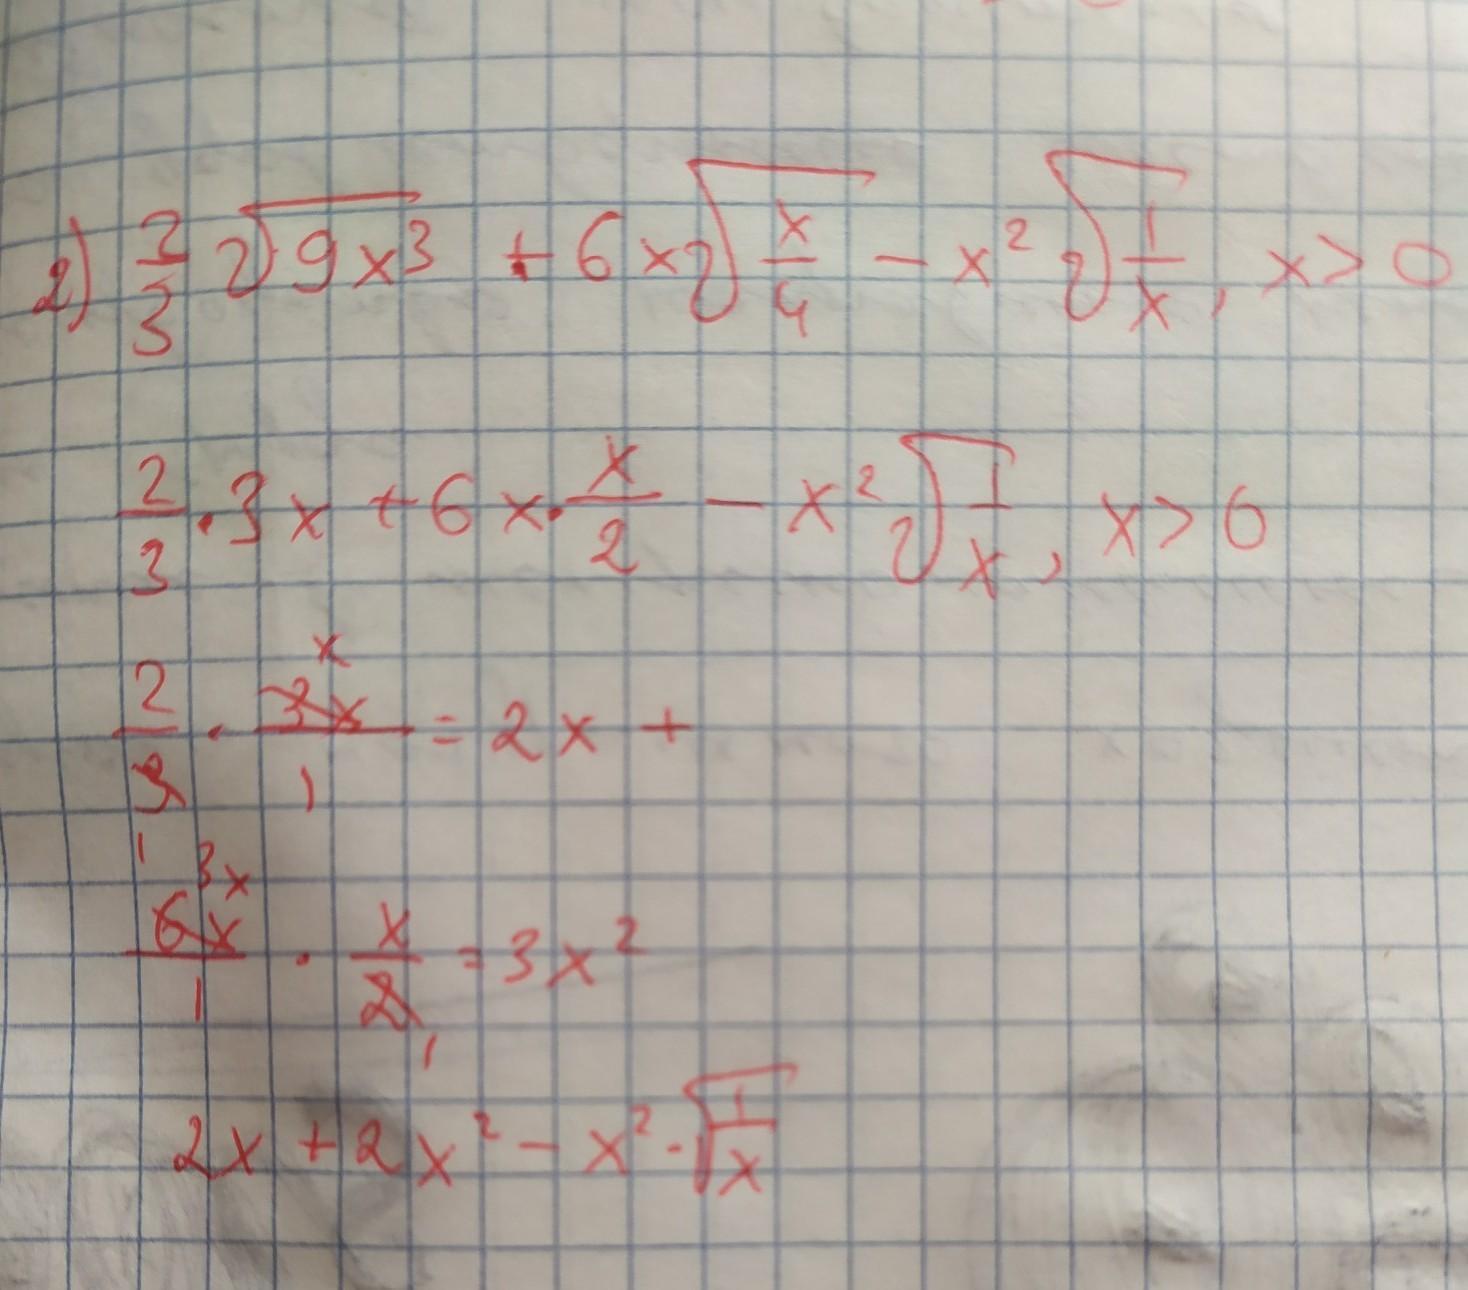 2) 2/3 ²√9x³ + 6x ²√x/4 − x² ²√1/x, x > 0
2/3 · 3x + 6x · x/2 − x² ²√1/x, x > 0
2/3 · 3x/1 = 2x +
x
1
3x
6x/1 · x/2 = 3x²
1
2x + 2x² − x² · √1/x